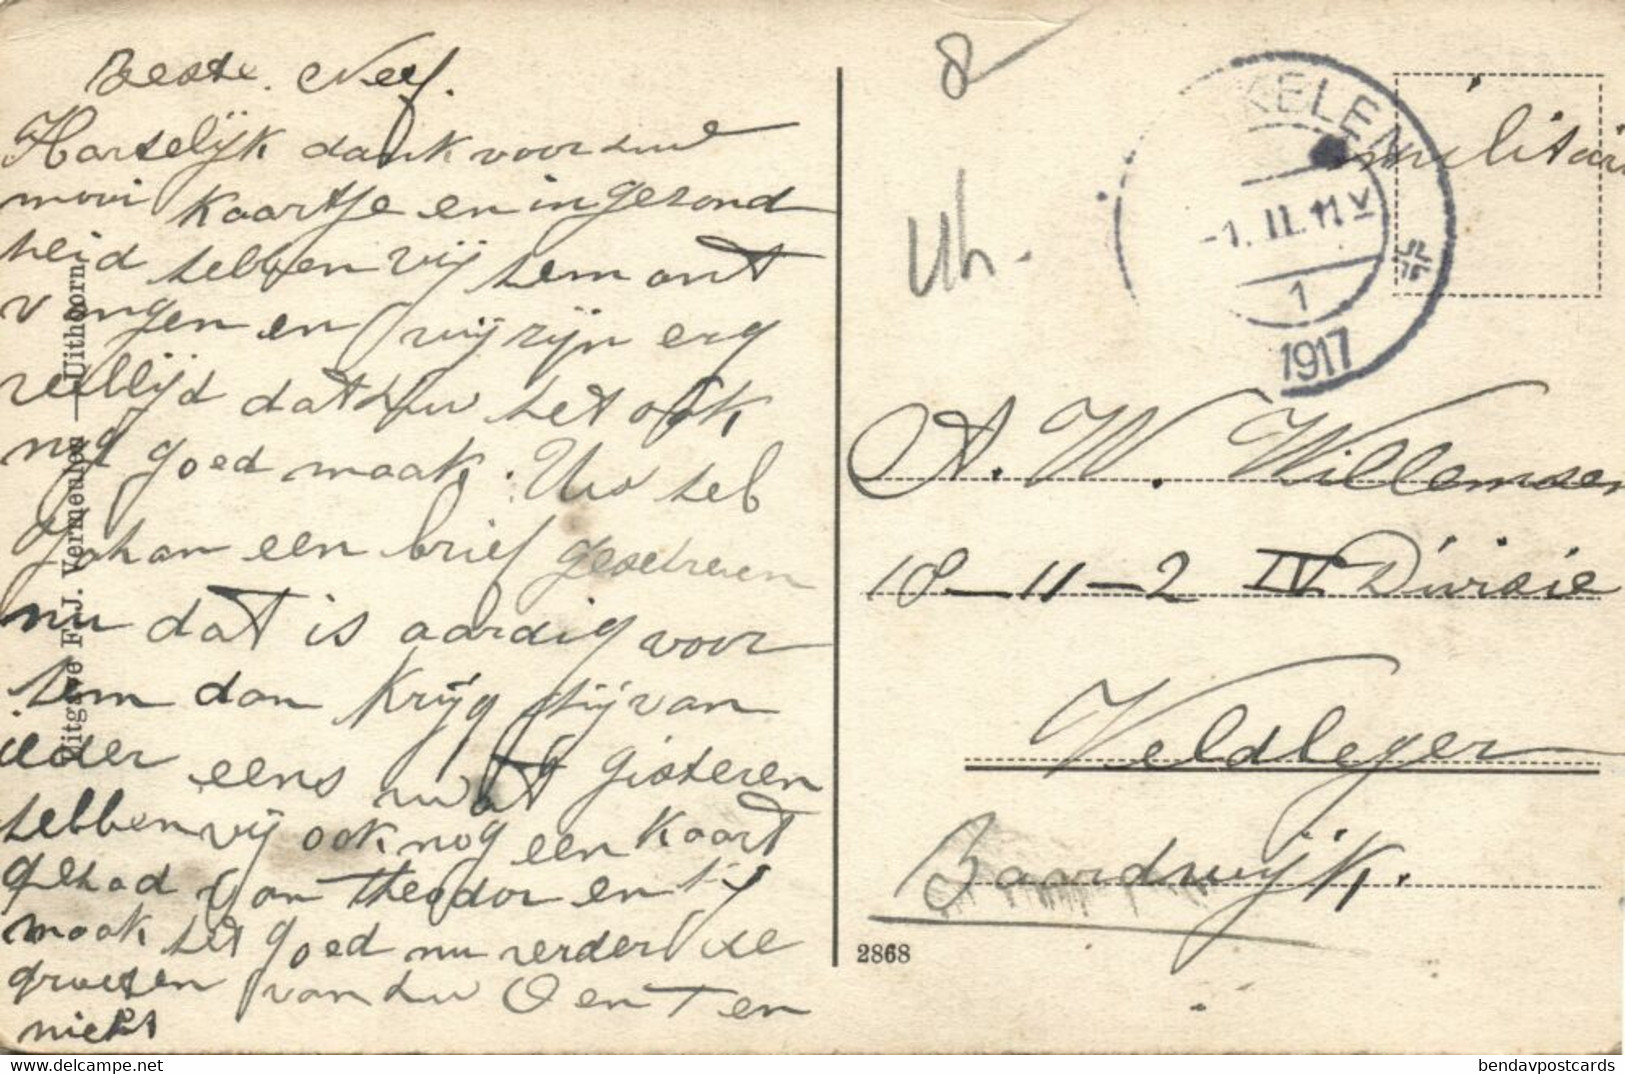 Beste. Neef.
Hartelijk dank voor uw
mooi kaartje en in gezond
heid hebben vij hem ont
vangen en vij zijn erg
verblijd dat uw het ook
nog goed maak. Uw heb
Johan een brief geschreven
nu dat is aardig voor
hem dan krijg hij van
ieder eens wat gisteren
hebben vij ook nog een kaart
gehad van Theodor en hij
maak het goed nu verder de
groeten van uw Oen Ten
nicht
Uitgave F. J. Vermeulen — Uithoorn
8
Uh.
KELEN
-1. II. 11 V
1
1917
militair
A. W. Willemsen
18-11-2 IV Divisie
Veldleger
Baardwijk.
2868
bendavpostcards